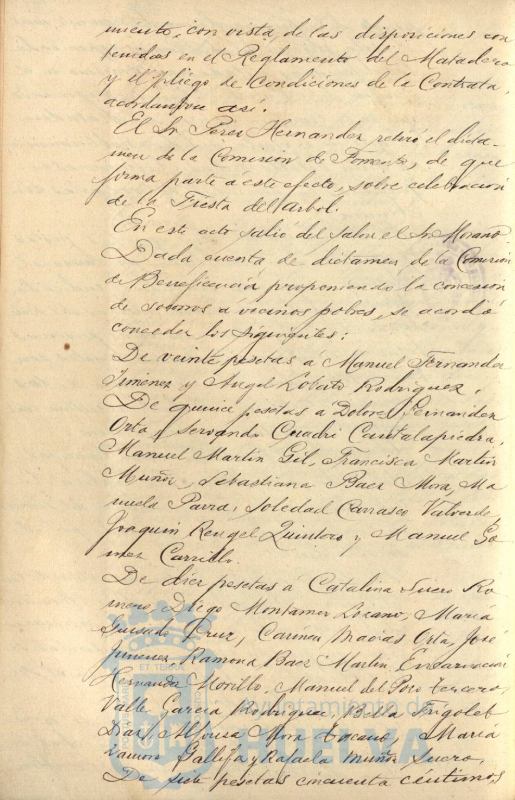 miento, con vista de las disposiciones con
tenidas en el Reglamento del Matadero
y el pliego de Condiciones de la Contrata,
acordandose así.
El Sr. Perez Hernandez retiró el dicta-
men de la Comision de Fomento, de que
firma parte á este efecto, sobre celebracion
de la Fiesta del Arbol.
En este acto salió del salon el Sr. Morano.
Dada cuenta de dictamen de la Comision
de Beneficencia proponiendo la concesion
de socorros á vecinos pobres, se acordó
conceder los siguientes:
De veinte pesetas á Manuel Fernandez
Jimenez y Angel Lobato Rodriguez.
De quince pesetas a Dolores Fernandez
Orta, Servando Cuadri Cantalapiedra,
Manuel Martin Gil, Francisca Martin
Muñoz, Sebastiana Baez Mora, Ma
nuela Parra, Soledad Carrasco Valverde,
Joaquin Rengel Quintero y Manuel Go
mez Carrillo.
De diez pesetas á Catalina Suero Ro
mero, Diego Montaner Lozano, María
Cruz, Carmen Macias Orta, José
Jimenez, Ramona Baez Martin, Encarnacion
Hernandez Morillo, Manuel del Pozo Tercero,
Valle Garcia Rodriguez, Bella Frigolet
Diaz, Alfonsa Mora Tocano, María
Ramos Gallija y Rafaela Muñoz Suero.
De siete pesetas cincuenta céntimos,
Ayuntamiento de
HUELVA